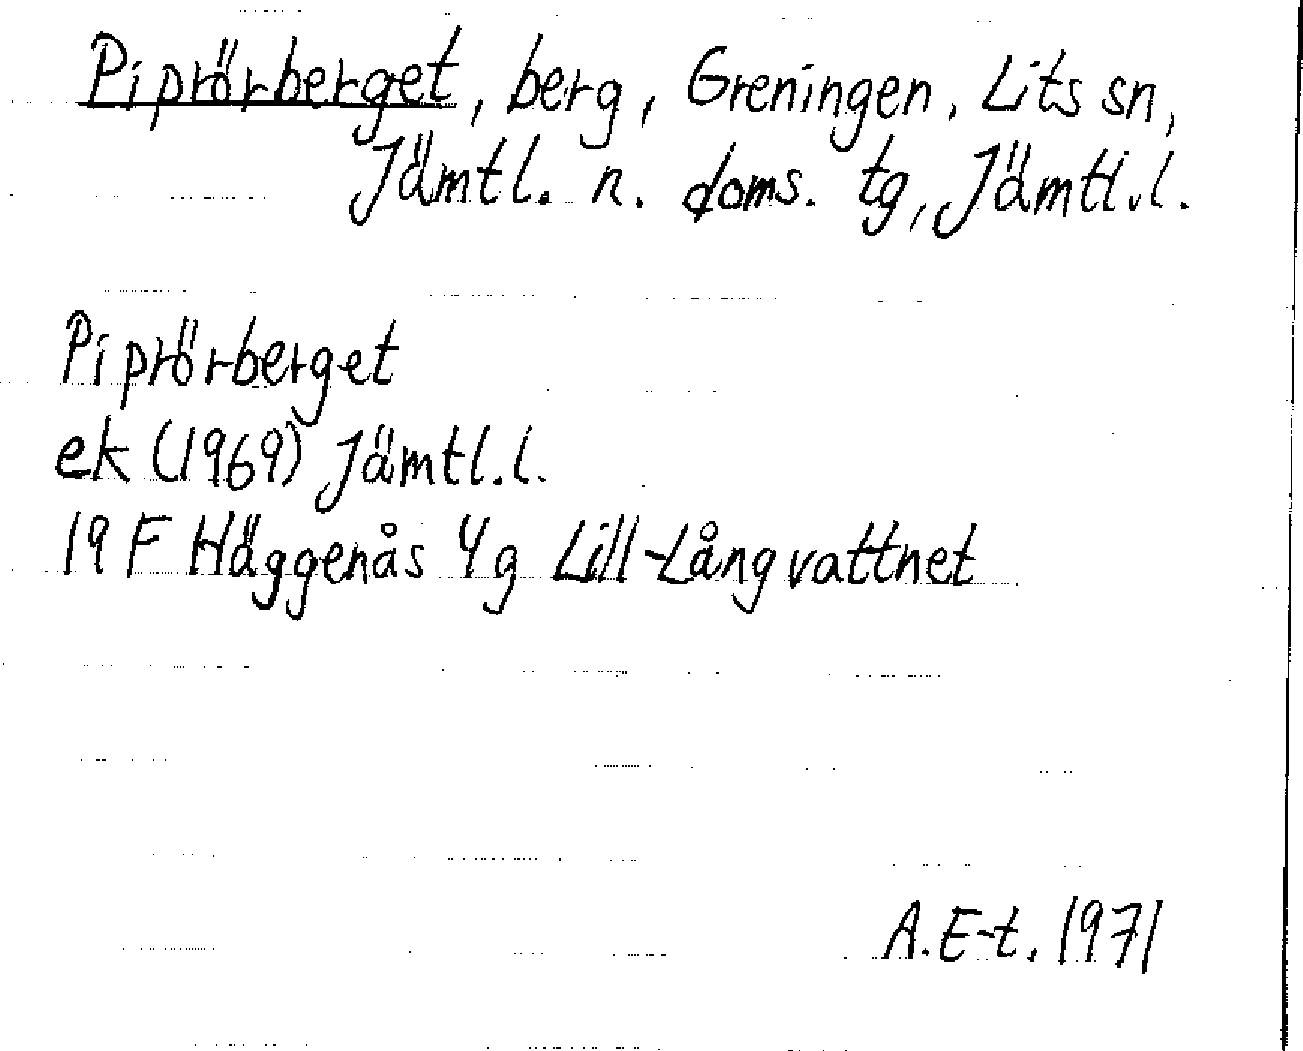 Piprörberget, berg, Greningen, Lits sn,
Jämtl. n. doms. tg, Jämtl.l.
Piprörberget
ek (1969) Jämtl.l.
19 F Häggenås 4g Lill-Långvattnet
A.E-t. 1971